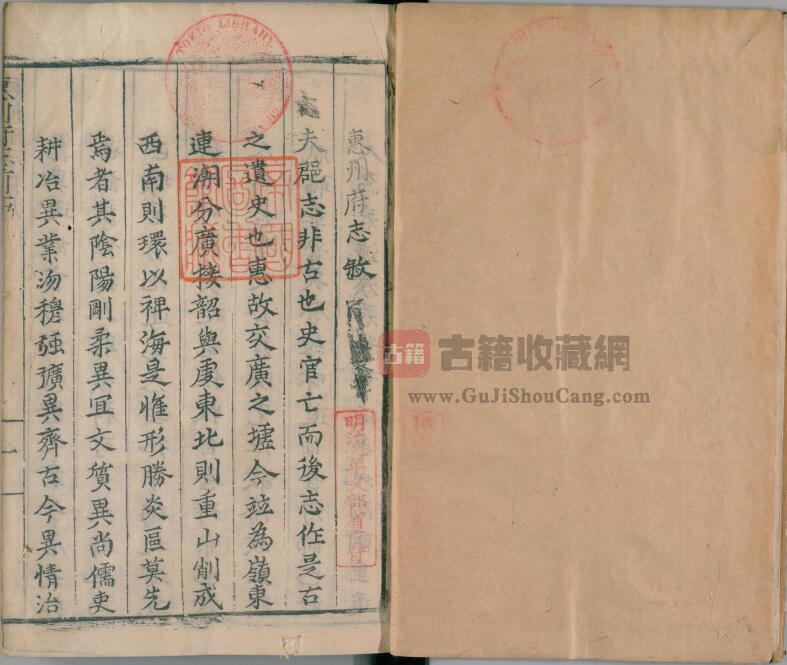 惠州府志敘
夫郡志非古也史官亡而後志作是古
之遺史也惠故交廣之墟今竝為嶺東
連潮分廣接韶與虔東北則重山削成
西南則環以裨海是惟形勝炎區莫先
焉者其陰陽剛柔異宜文質異尚儒吏
耕冶異業沕穆強獷異齊古今異情治
TOKIO LIBRARY
明治
古籍
古籍收藏網
www.GuJiShouCang.com